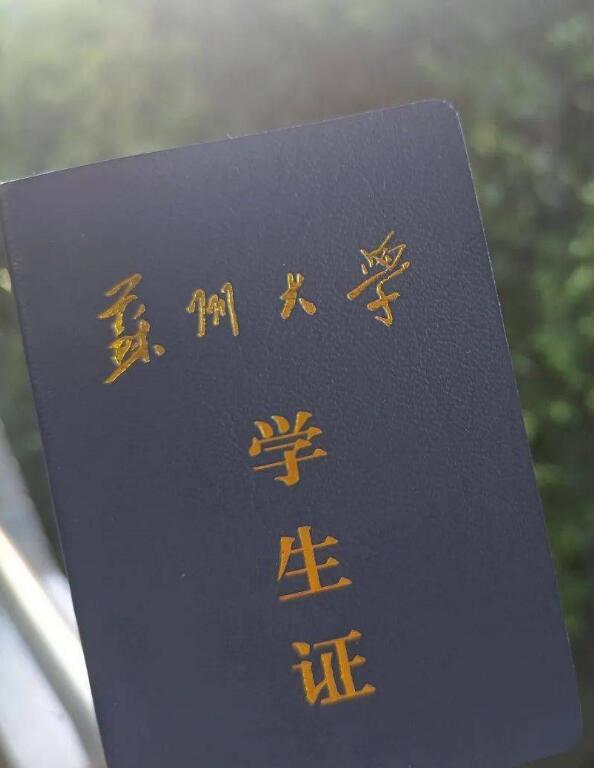 蘇州大學
学生证